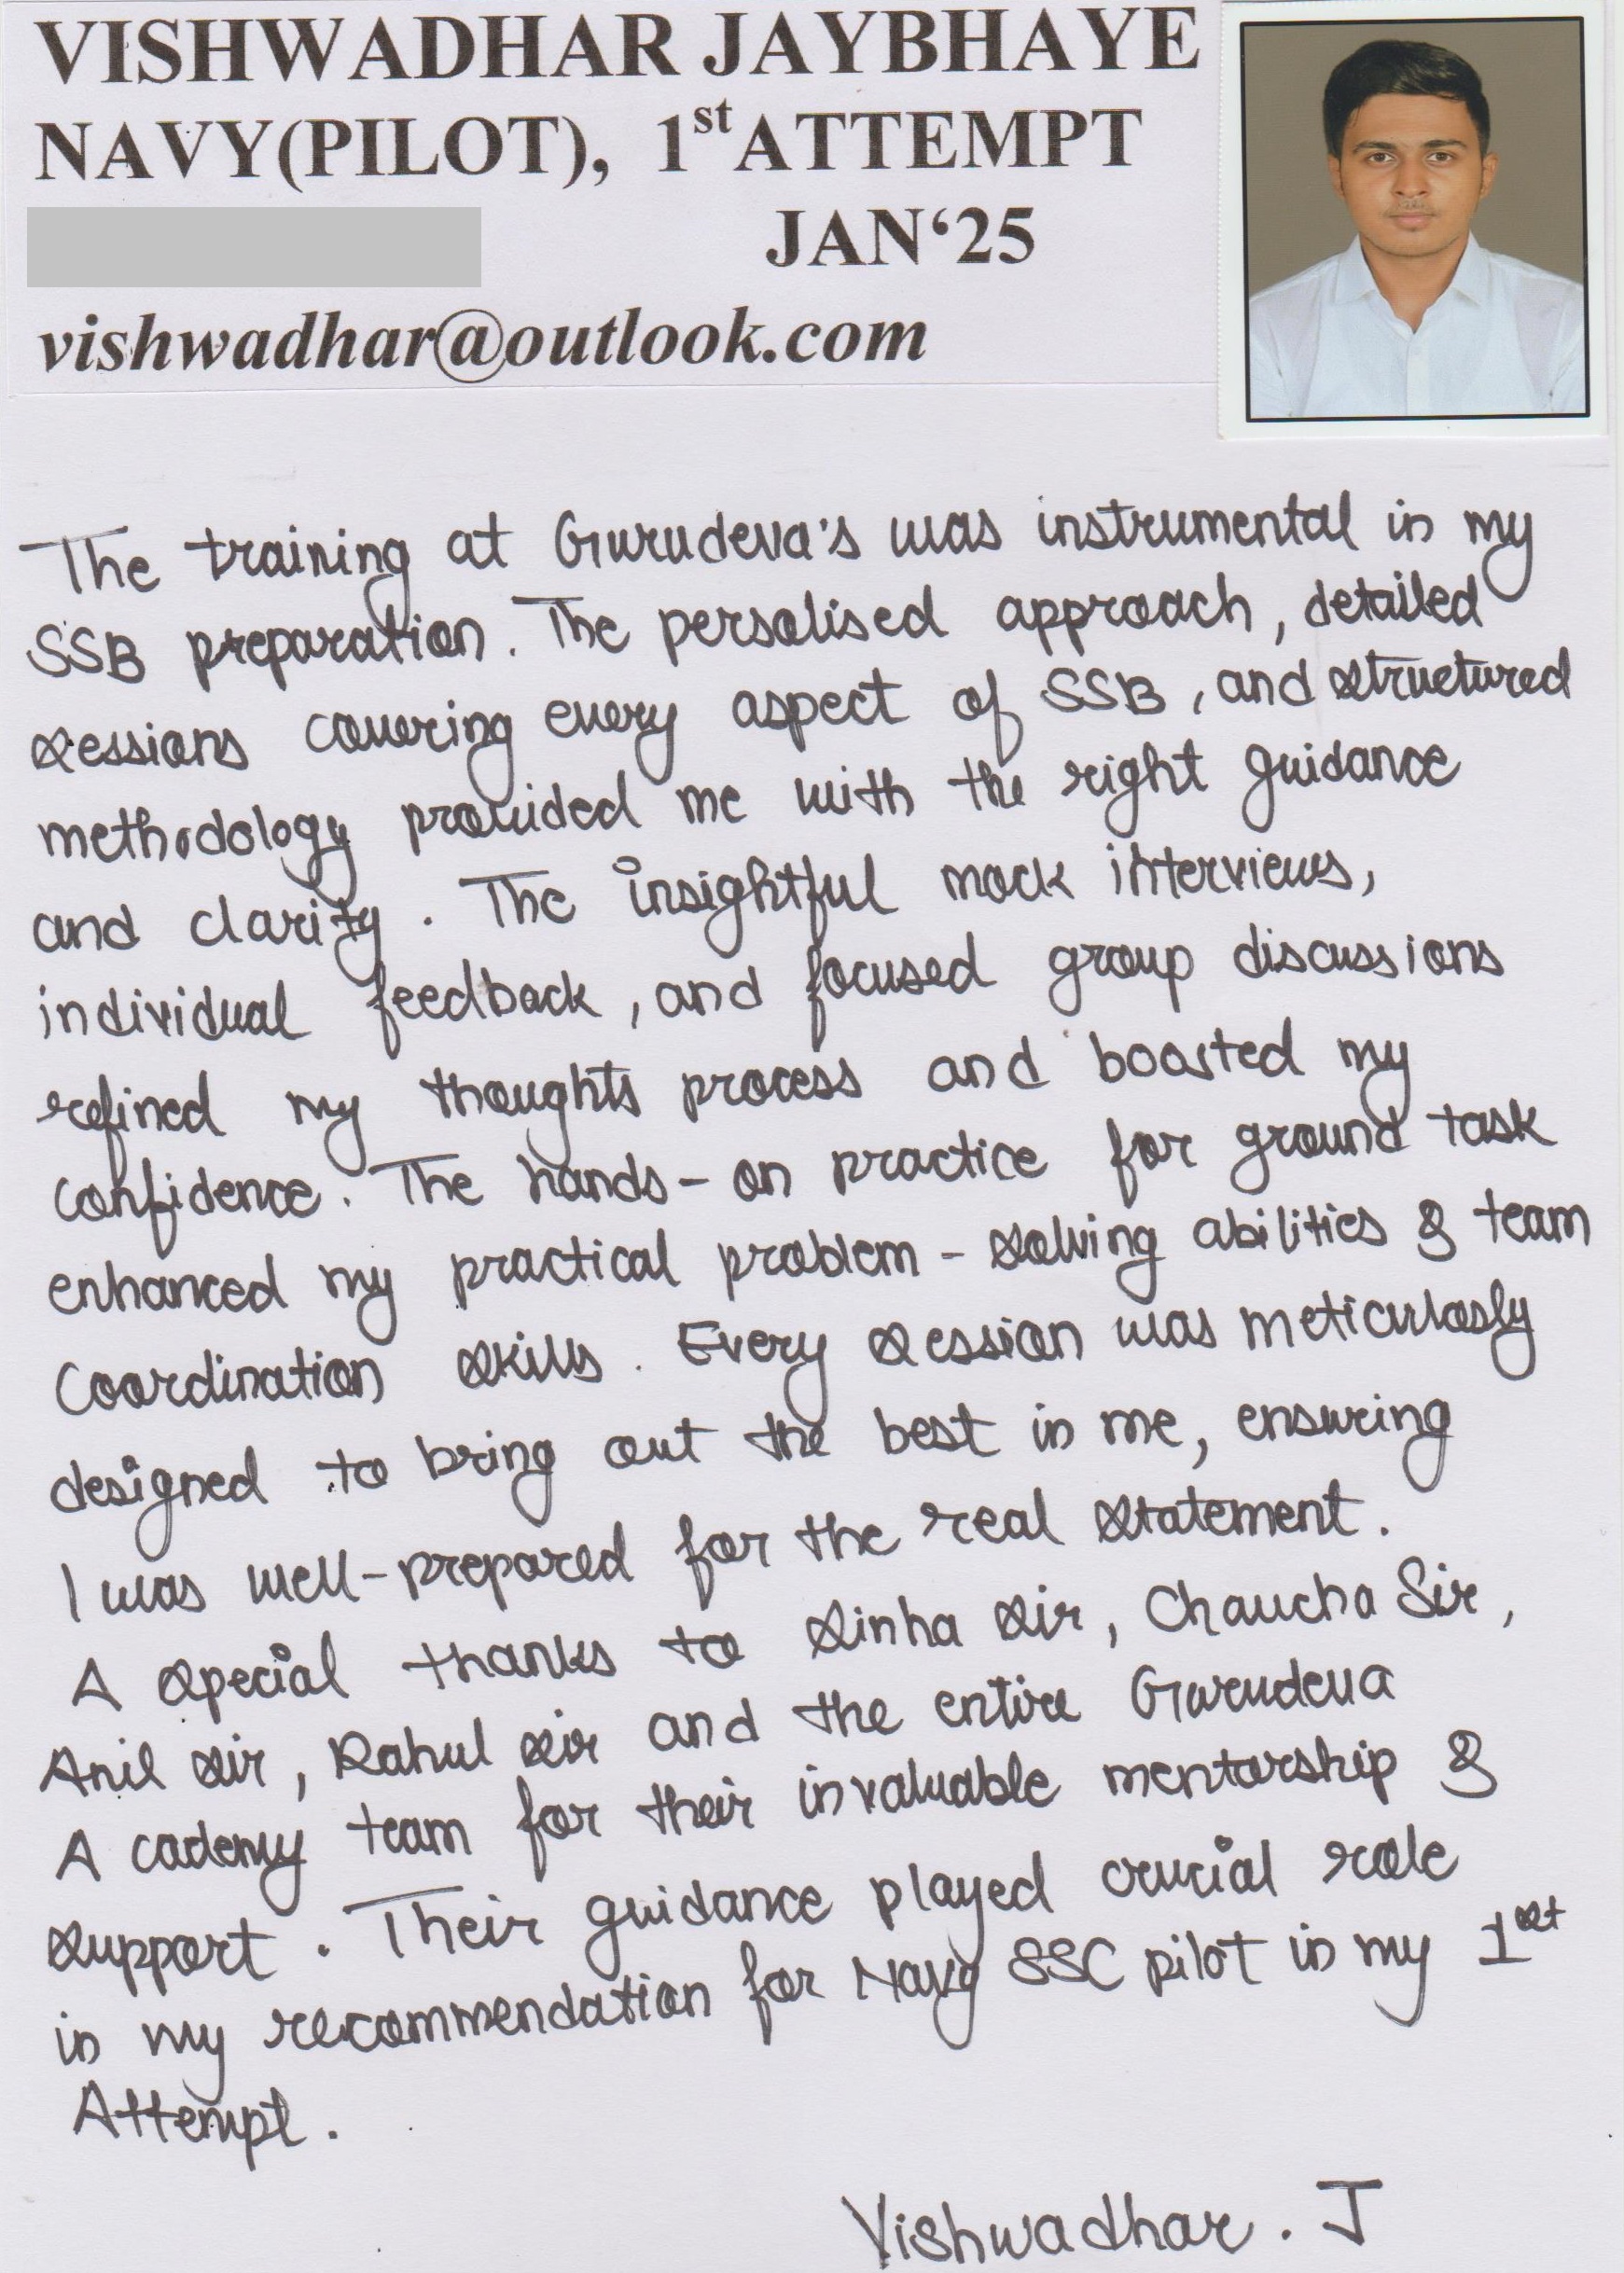 VISHWADHAR JAYBHAYE
NAVY(PILOT), 1st ATTEMPT
JAN‘25
vishwadhar@outlook.com
The training at Gurudeva's was instrumental in my
SSB preparation. The persolised approach, detailed
sessions covering every aspect of SSB, and structured
methodology provided me with the right guidance
and clarity. The insightful mock interviews,
individual feedback, and focused group discussions
refined my thoughts process and boosted my
confidence. The hands-on practice for ground task
enhanced my practical problem-solving abilities & team
Coordination skills. Every session was meticulosly
designed to bring out the best in me, ensuring
I was well-prepared for the real statement.
A special thanks to Sinha sir, Chaucha Sir,
Anil sir, Rahul sir and the entire Gurudeva
Academy team for their invaluable mentorship &
support. Their guidance played crucial role
in my recommendation for Navy SSC pilot in my 1st
Attempt.
Vishwadhar. J